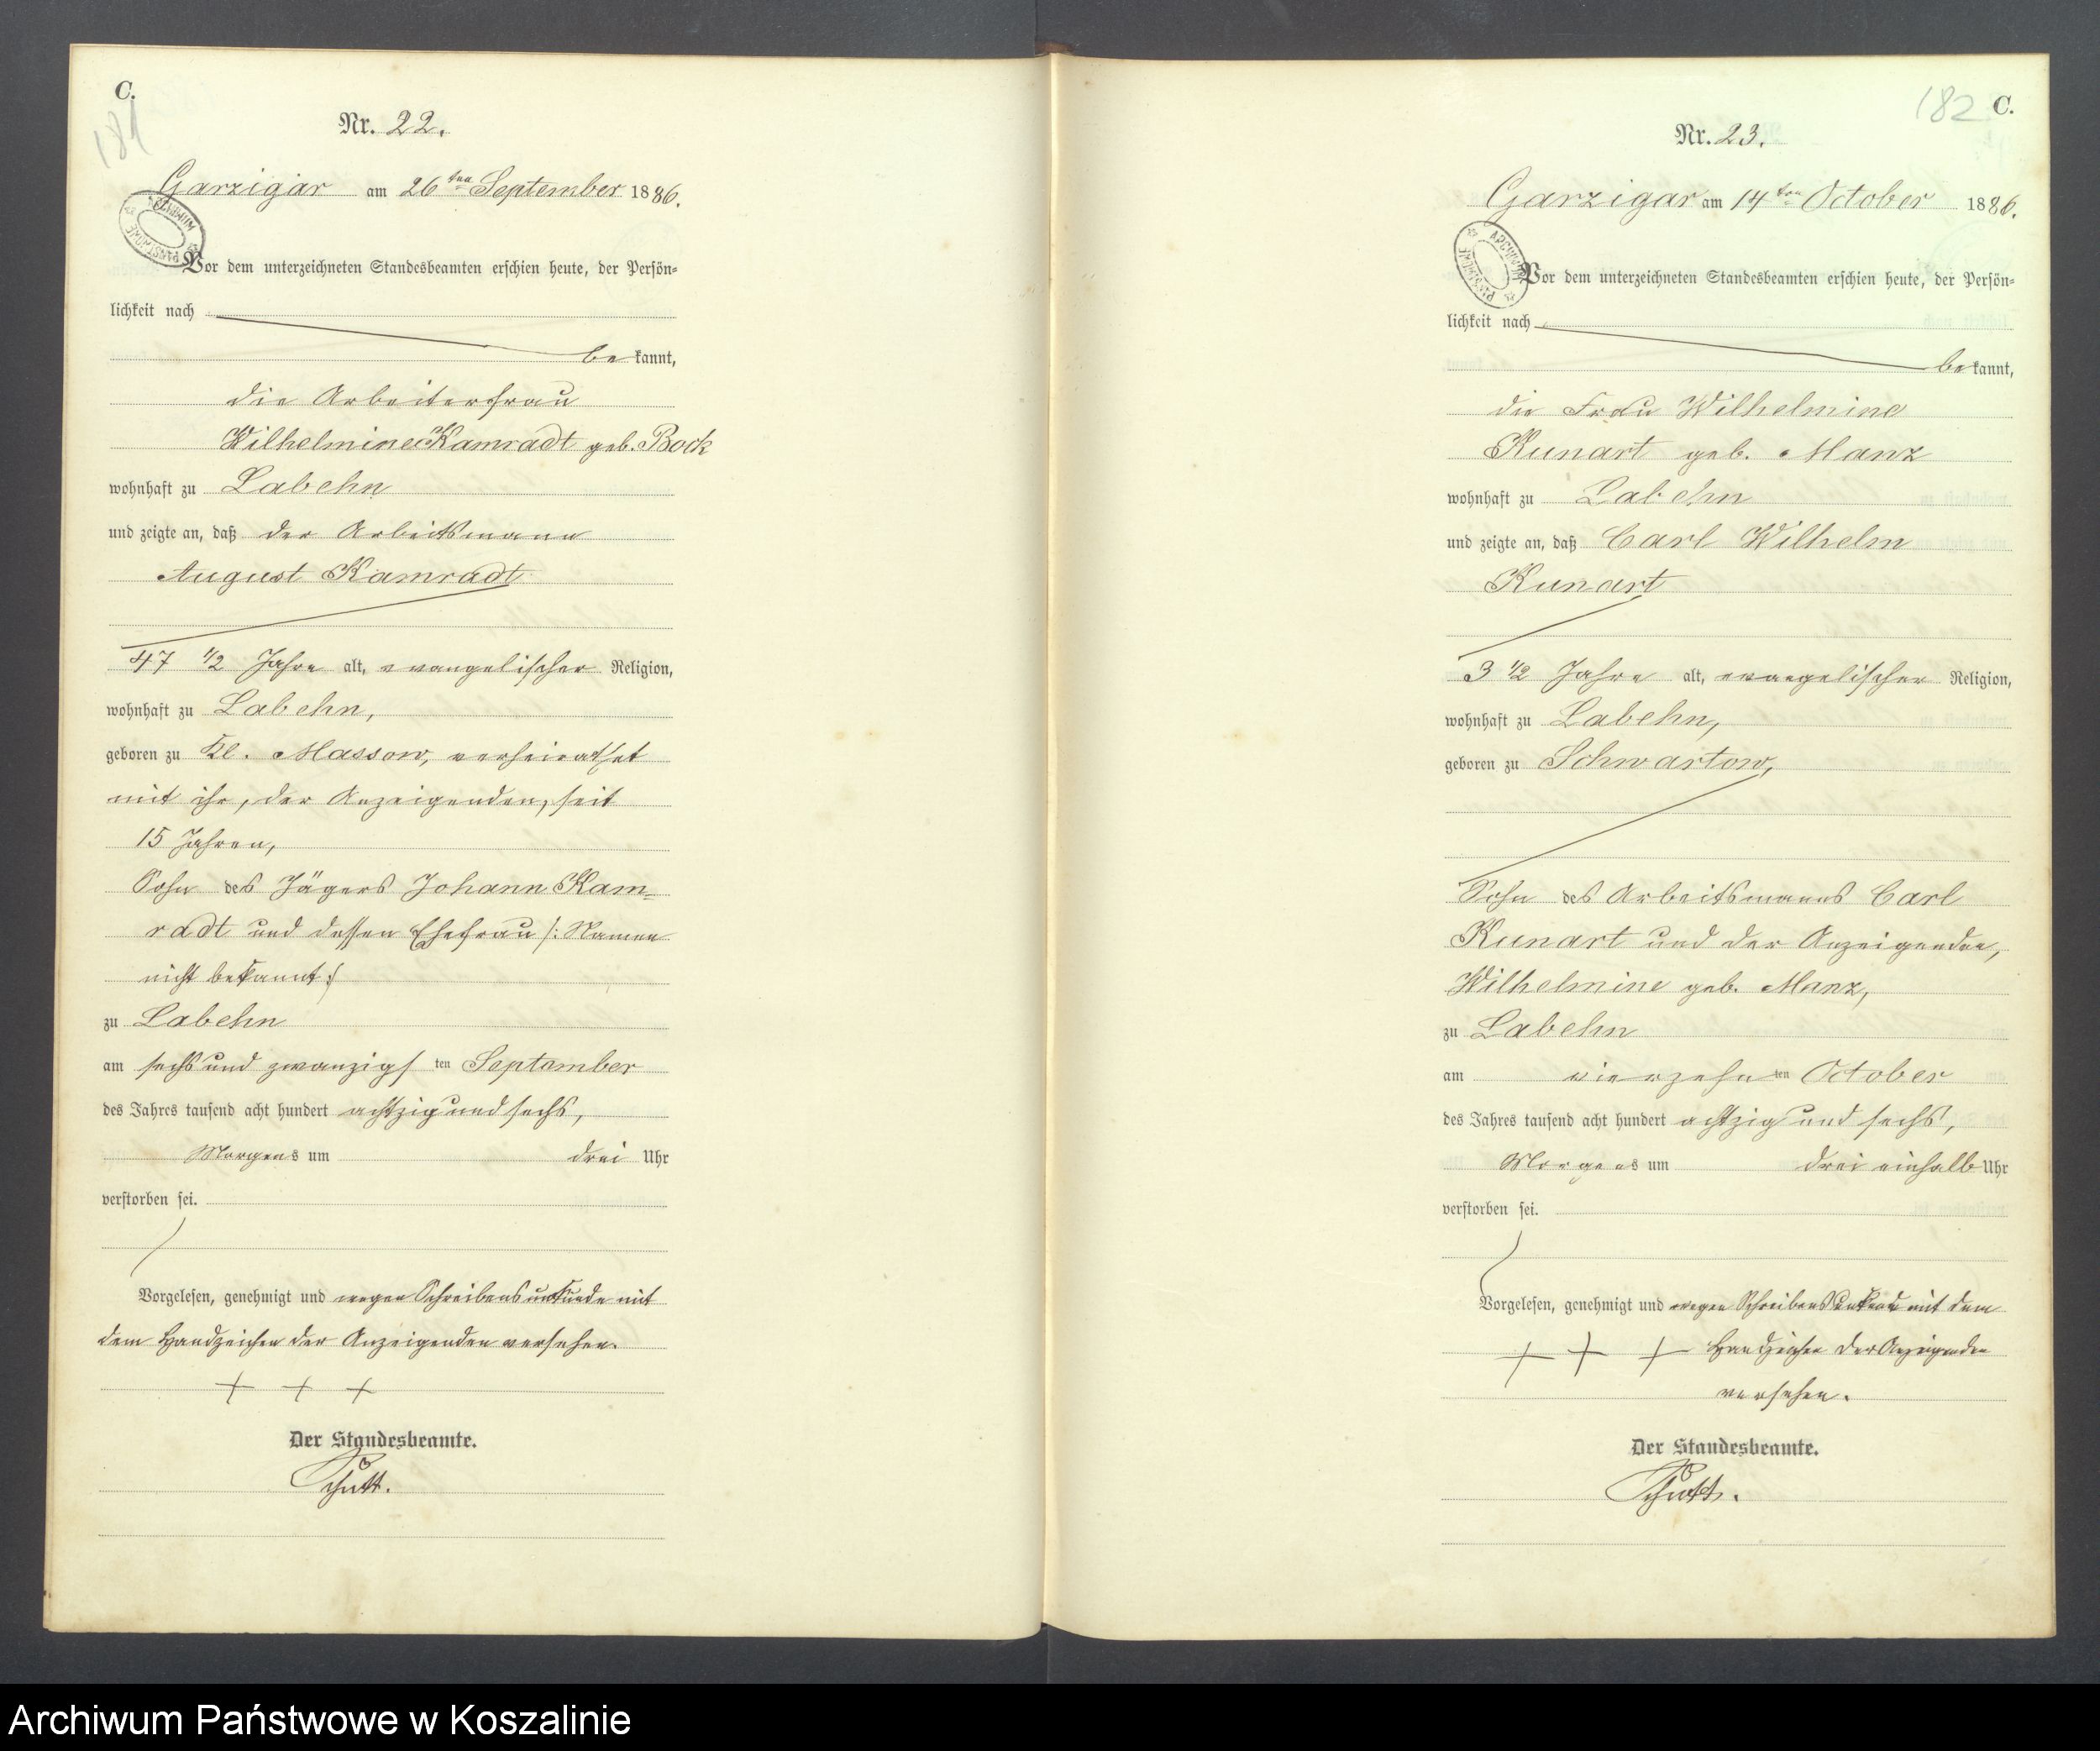 C.
181
Nr. 22.
Garzigar am 26ten September 1886.
Vor dem unterzeichneten Standesbeamten erschien heute, der Persön=
lichkeit nach
be kannt,
die Arbeiterfrau
Wilhelmine Kamradt geb. Bock
wohnhaft zu Labehn
und zeigte an, daß der Arbeitsmann
August Kamradt
47 1/2 Jahre alt, evangelischer Religion,
wohnhaft zu Labehn,
geboren zu Kl. Massow, verheirathet
mit ihr, der Anzeigenden, seit
15 Jahren,
Sohn des Jägers Johann Kam=
radt und dessen Ehefrau /: Namen
nicht bekannt :/
zu Labehn
am sechs und zwanzigsten September
des Jahres tausend acht hundert achtzig und sechs,
Morgens um drei Uhr
verstorben sei.
Vorgelesen, genehmigt und wegen Schreibensunkunde mit
dem Handzeichen der Anzeigenden versehen.
+ + +
Der Standesbeamte.
Schütt.
182 C.
Nr. 23.
Garzigar am 14ten October 1886.
Vor dem unterzeichneten Standesbeamten erschien heute, der Persön=
lichkeit nach
be kannt,
die Frau Wilhelmine
Kunart geb. Manz
wohnhaft zu Labehn
und zeigte an, daß Carl Wilhelm
Kunart
3 1/2 Jahre alt, evangelischer Religion,
wohnhaft zu Labehn,
geboren zu Schwartow,
Sohn des Arbeitsmanns Carl
Kunart und der Anzeigenden,
Wilhelmine geb. Manz,
zu Labehn
am vierzehnten October
des Jahres tausend acht hundert achtzig und sechs,
Morgens um drei einhalb Uhr
verstorben sei.
Vorgelesen, genehmigt und wegen Schreibensunkunde mit dem
+ + + Handzeichen der Anzeigenden
versehen.
Der Standesbeamte.
Schütt.
Archiwum Państwowe w Koszalinie